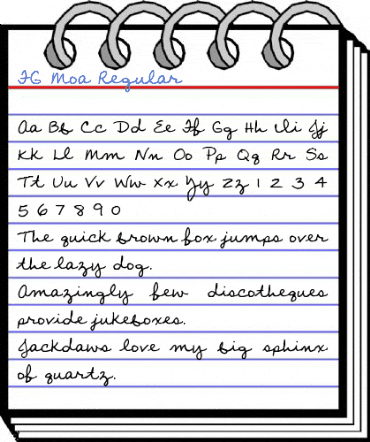 FG Moa Regular
Aa Bb Cc Dd Ee Ff Gg Hh Ii Jj
Kk Ll Mm Nn Oo Pp Qq Rr Ss
Tt Uu Vv Ww Xx Yy Zz 1 2 3 4
5 6 7 8 9 0
The quick brown fox jumps over
the lazy dog.
Amazingly few discotheques
provide jukeboxes.
Jackdaws love my big sphinx
of quartz.